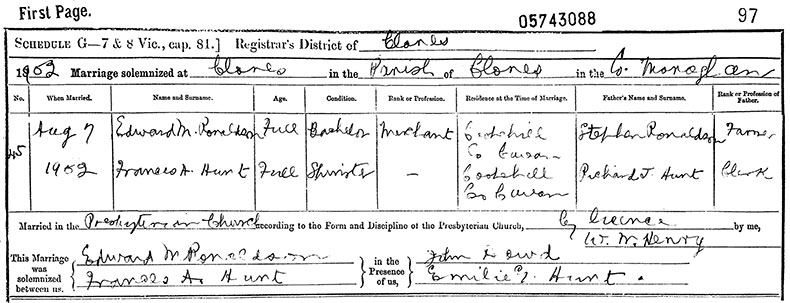 First Page. 05743088 97
SCHEDULE G—7 & 8 Vic., cap. 81.] Registrar's District of Clones
1902 Marriage solemnized at Clones in the Parish of Clones in the Co. Monaghan
No. When Married. Name and Surname. Age. Condition. Rank or Profession. Residence at the Time of Marriage. Father's Name and Surname. Rank or Profession of Father.
45 Aug 7 Edward M. Ronaldson Full Bachelor Merchant Cootehill Co Cavan Stephen Ronaldson Farmer
1902 Frances A. Hunt Full Spinster — Cootehill Co Cavan Richard T. Hunt Clerk
Married in the Presbyterian Church according to the Form and Discipline of the Presbyterian Church, by licence by me,
W. McHenry
This Marriage was solemnized between us, Edward M Ronaldson in the Presence of us, John Dowd
Frances A. Hunt Emilie Hunt.